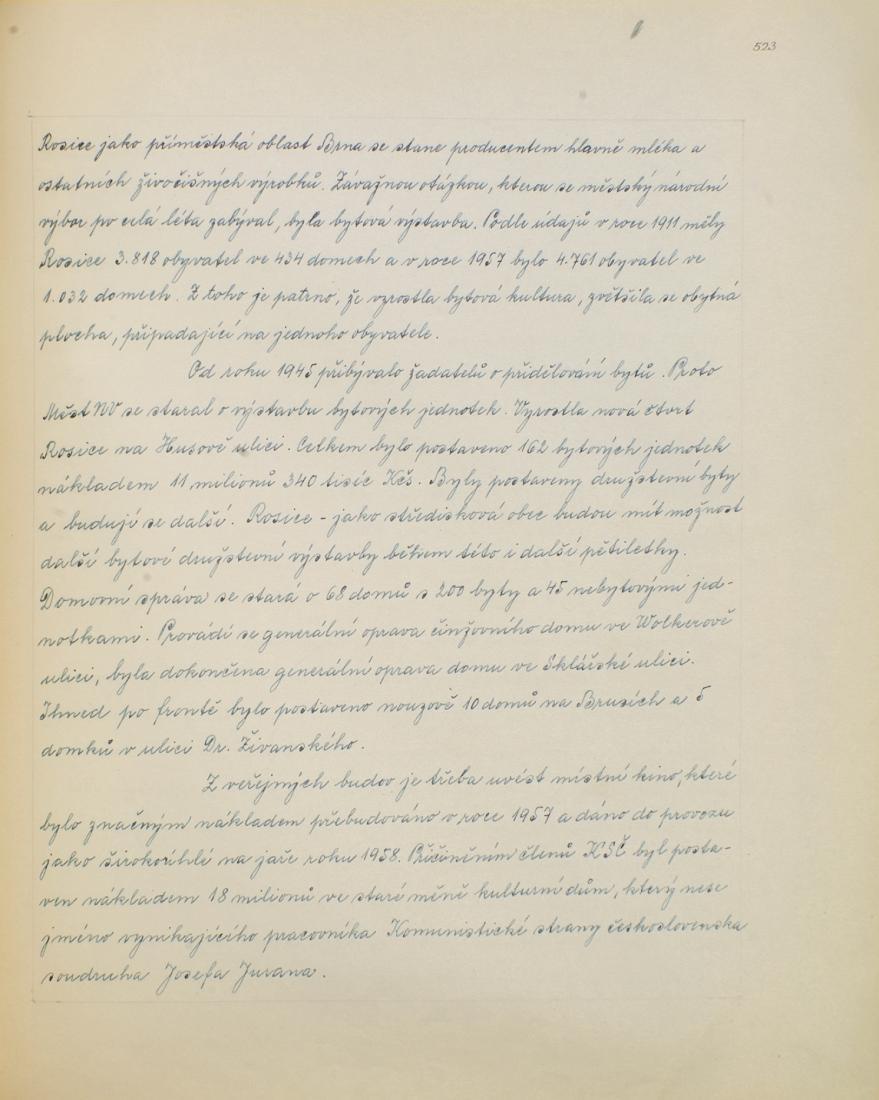 523
Rosice jako příměstská oblast Brna se stane producentem hlavně mléka a
ostatních živočišných výrobků. Závažnou otázkou, kterou se městský národní
výbor po celá léta zabýval, byla bytová výstavba. Podle údajů v roce 1911 měly
Rosice 3.818 obyvatel ve 434 domech a v roce 1957 bylo 4.761 obyvatel ve
1.032 domech. Z toho je patrno, že vzrostla bytová kultura, zvětšila se obytná
plocha, připadající na jednoho obyvatele.
Od roku 1945 přibývalo žadatelů o přidělování bytů. Proto
Měst NV se staral o výstavbu bytových jednotek. Vyrostla nová čtvrt
Rosice na Husově ulici. Celkem bylo postaveno 162 bytových jednotek
nákladem 11 milionů 340 tisíc Kčs. Byly postaveny družstevní byty
a budují se další. Rosice - jako středisková obec budou mít možnost
další bytové družstevní výstavby během této i další pětiletky.
Domovní správa se stará o 68 domů s 200 byty a 45 nebytovými jed-
notkami. Provádí se generální oprava činžovního domu ve Wolkerově
ulici, byla dokončena generální oprava domu ve Sklářské ulici.
Ihned po frontě bylo postaveno nouzově 10 domů na Brusích a 5
domků v ulici Dr. Živanského.
Z veřejných budov je třeba uvést místní kino, které
bylo značným nákladem přebudováno v roce 1957 a dáno do provozu
jako širokoúhlé na jaře roku 1958. Přičiněním členů KSČ byl posta-
ven nákladem 18 milionů ve staré měně kulturní dům, který nese
jméno vynikajícího pracovníka Komunistické strany československa
soudruha Josefa Jurana.